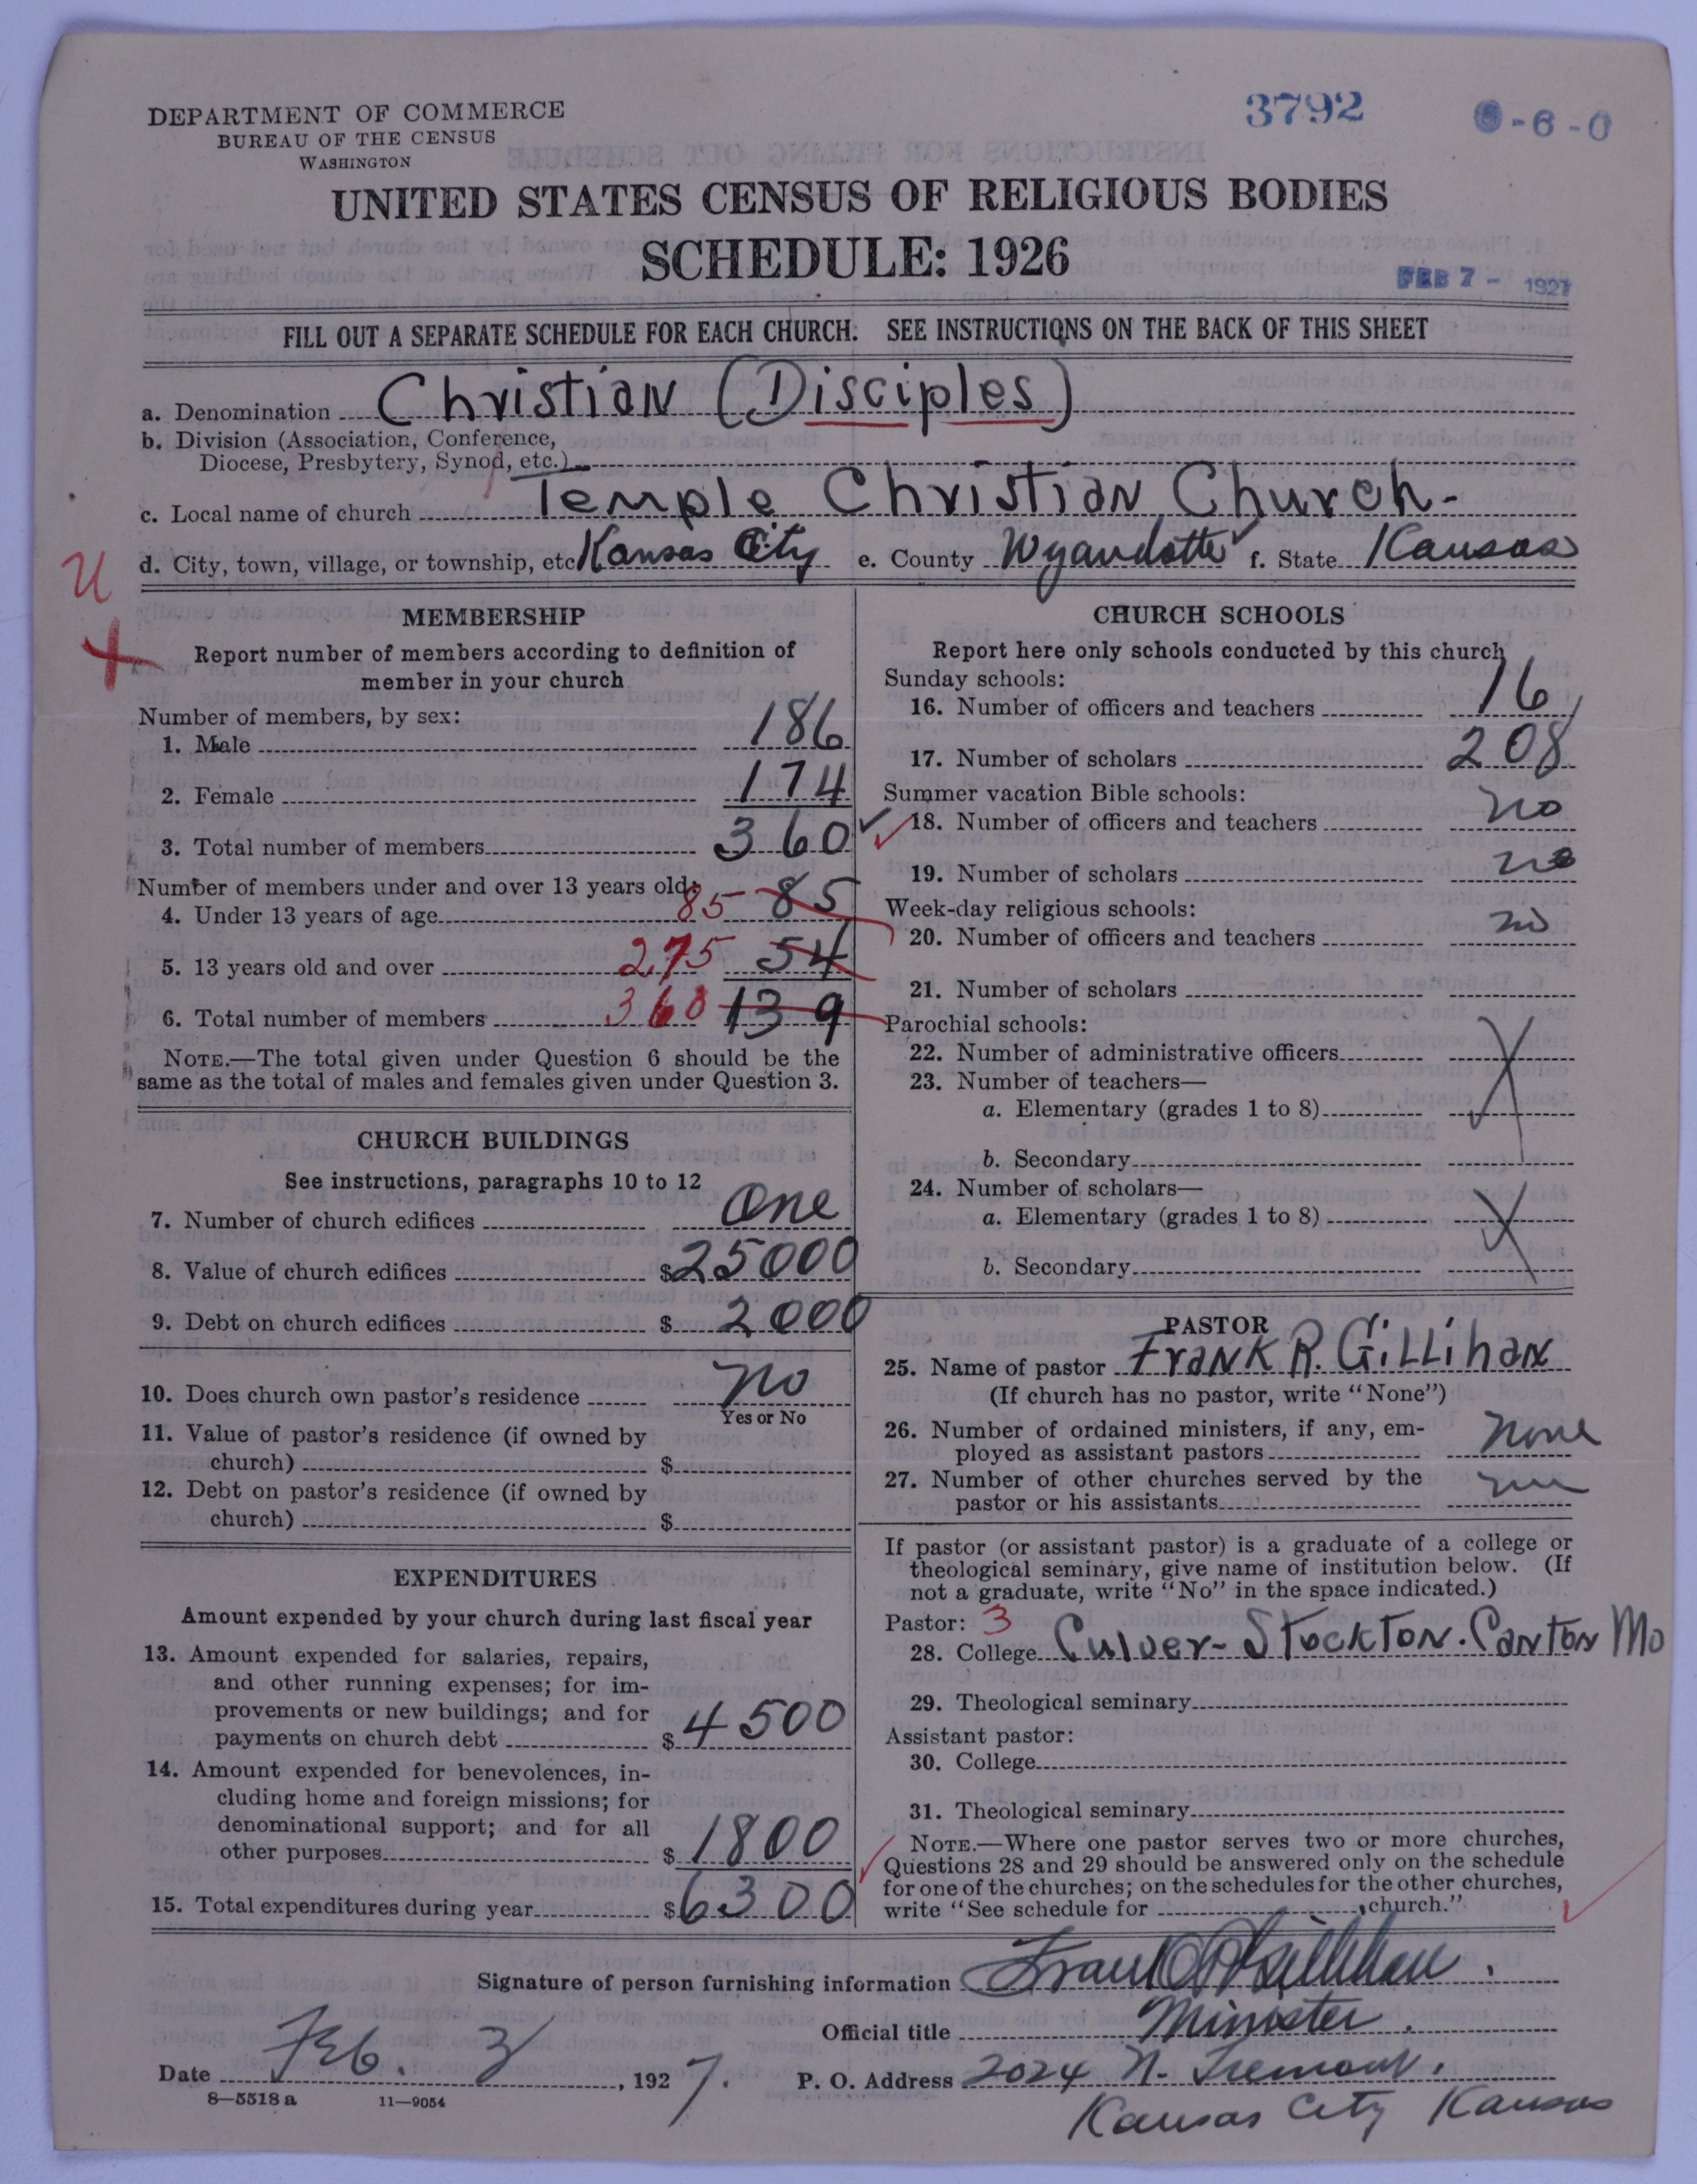 DEPARTMENT OF COMMERCE
BUREAU OF THE CENSUS
WASHINGTON
3792
-6-0
UNITED STATES CENSUS OF RELIGIOUS BODIES
SCHEDULE: 1926
FEB 7 - 1927
FILL OUT A SEPARATE SCHEDULE FOR EACH CHURCH. SEE INSTRUCTIONS ON THE BACK OF THIS SHEET
a. Denomination Christian (Disciples)
b. Division (Association, Conference,
Diocese, Presbytery, Synod, etc.)
c. Local name of church Temple Christian Church-
d. City, town, village, or township, etc Kansas City e. County Wyandotte f. State Kansas
U
MEMBERSHIP
Report number of members according to definition of
member in your church
Number of members, by sex:
1. Male 186
2. Female 174
3. Total number of members 360
Number of members under and over 13 years old:
4. Under 13 years of age 85 85
5. 13 years old and over 275 54
6. Total number of members 360 139
NOTE.—The total given under Question 6 should be the
same as the total of males and females given under Question 3.
CHURCH BUILDINGS
See instructions, paragraphs 10 to 12
7. Number of church edifices One
8. Value of church edifices $25000
9. Debt on church edifices $2000
10. Does church own pastor's residence No
Yes or No
11. Value of pastor's residence (if owned by
church) $
12. Debt on pastor's residence (if owned by
church) $
EXPENDITURES
Amount expended by your church during last fiscal year
13. Amount expended for salaries, repairs,
and other running expenses; for im-
provements or new buildings; and for
payments on church debt $4500
14. Amount expended for benevolences, in-
cluding home and foreign missions; for
denominational support; and for all
other purposes $1800
15. Total expenditures during year $6300
CHURCH SCHOOLS
Report here only schools conducted by this church
Sunday schools:
16. Number of officers and teachers 16
17. Number of scholars 208
Summer vacation Bible schools:
18. Number of officers and teachers no
19. Number of scholars no
Week-day religious schools:
20. Number of officers and teachers no
21. Number of scholars
Parochial schools:
22. Number of administrative officers
23. Number of teachers—
a. Elementary (grades 1 to 8)
b. Secondary
24. Number of scholars—
a. Elementary (grades 1 to 8)
b. Secondary
PASTOR
25. Name of pastor Frank R. Gillihan
(If church has no pastor, write "None")
26. Number of ordained ministers, if any, em-
ployed as assistant pastors none
27. Number of other churches served by the
pastor or his assistants
If pastor (or assistant pastor) is a graduate of a college or
theological seminary, give name of institution below. (If
not a graduate, write "No" in the space indicated.)
Pastor: 3
28. College Culver-Stockton. Canton Mo
29. Theological seminary
Assistant pastor:
30. College
31. Theological seminary
NOTE.—Where one pastor serves two or more churches,
Questions 28 and 29 should be answered only on the schedule
for one of the churches; on the schedules for the other churches,
write "See schedule for , church."
Signature of person furnishing information Frank R Gillihan.
Official title Minister.
Date Feb. 3, 1927. P. O. Address 2024 N. Tremont.
8—5518 a 11—9054
Kansas City Kansas